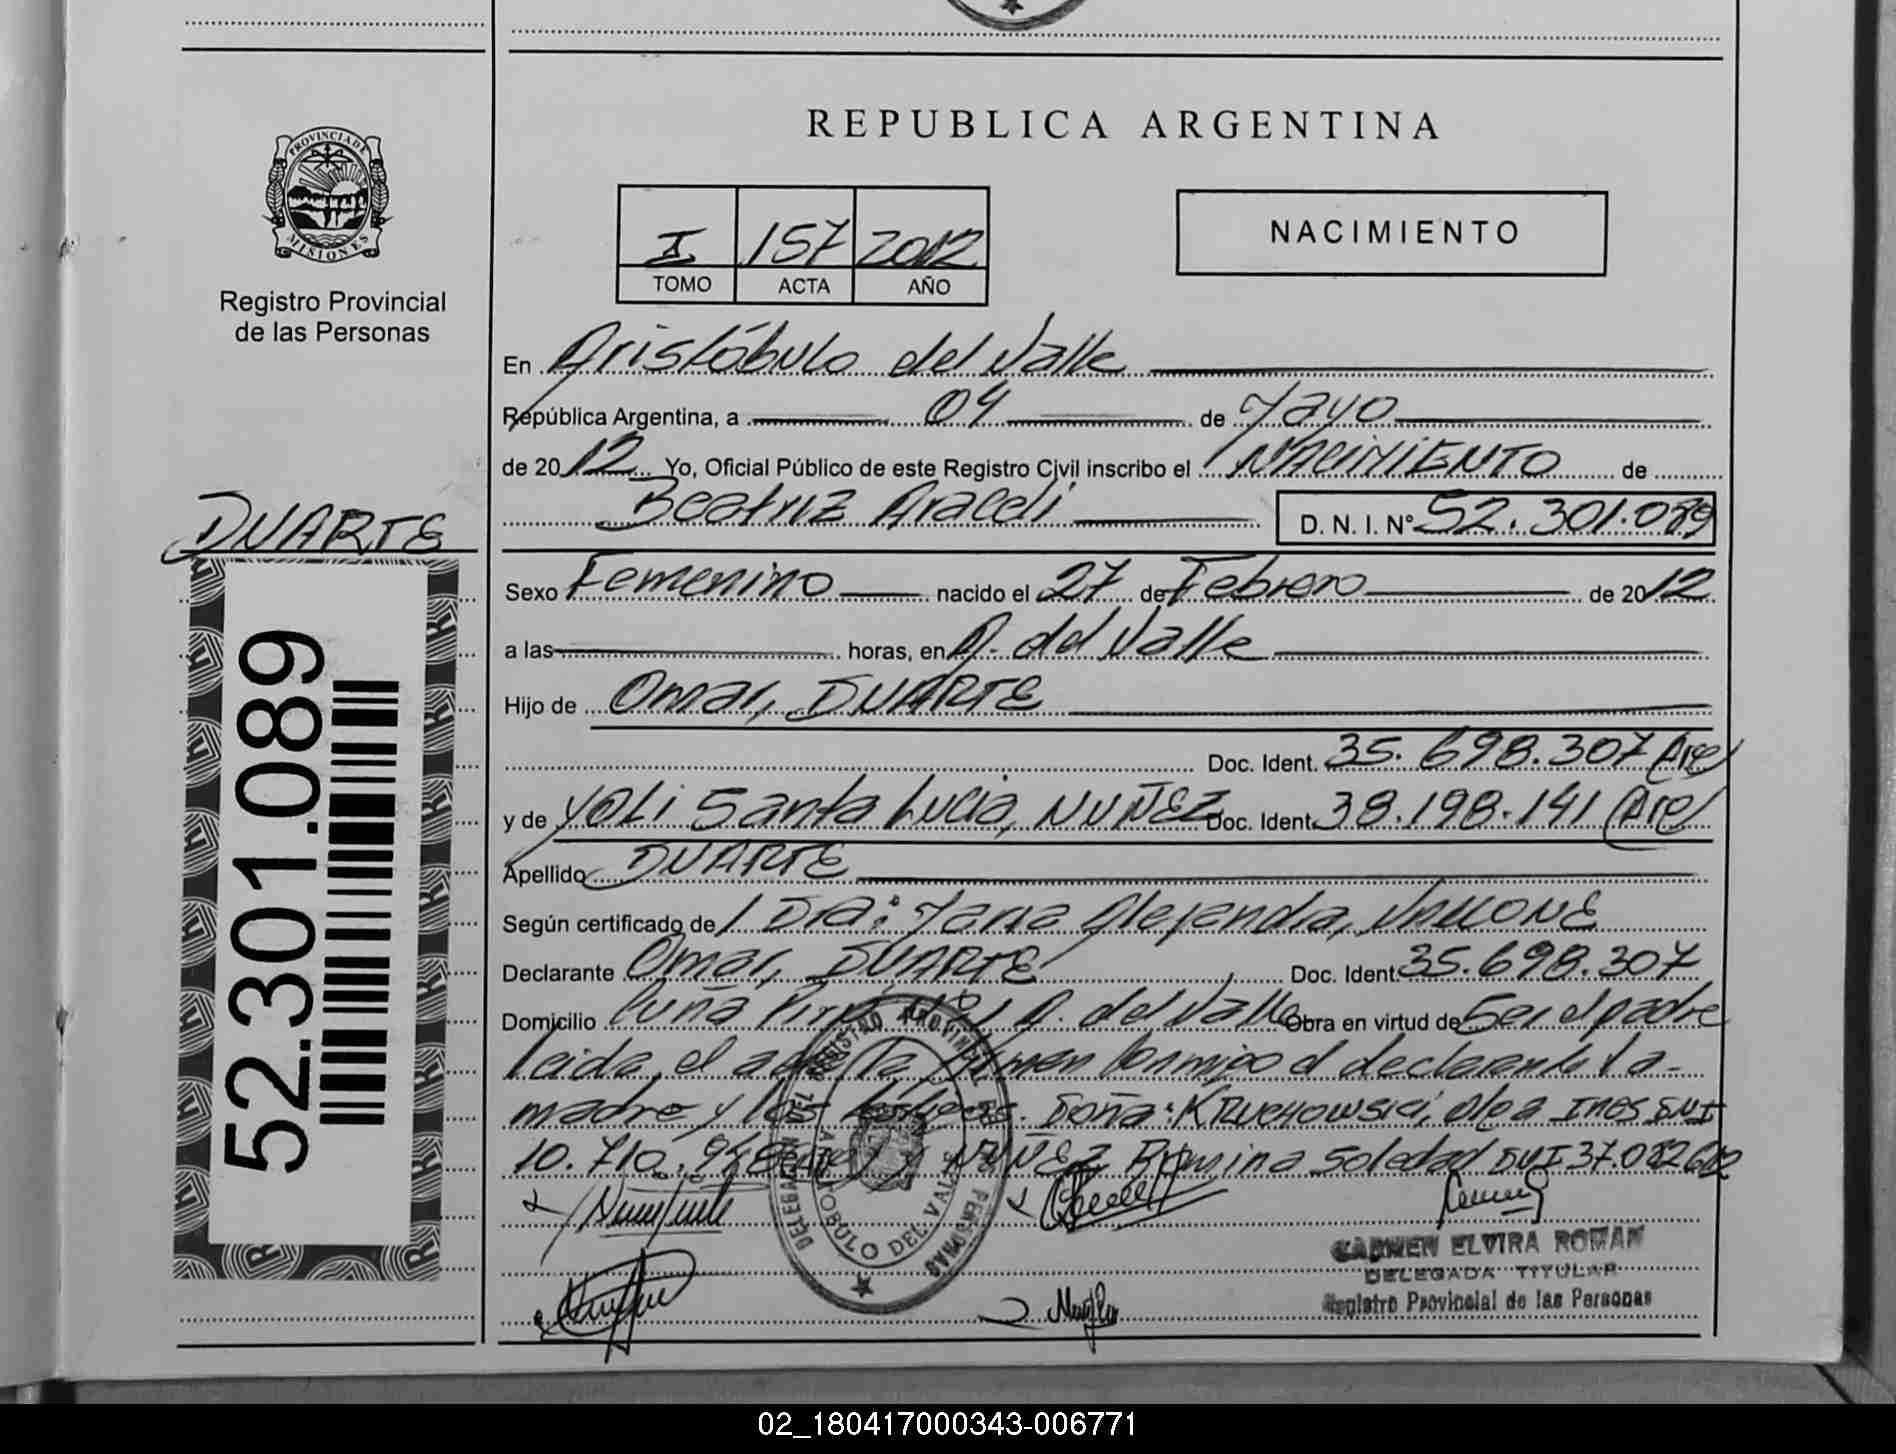 REPUBLICA ARGENTINA
PROVINCIA DE
MISIONES
Registro Provincial
de las Personas
I 157 2012
TOMO ACTA AÑO
NACIMIENTO
En Aristóbulo del Valle
República Argentina, a 04 de Mayo
de 2012 Yo, Oficial Público de este Registro Civil inscribo el NACIMIENTO de
Beatriz Araceli D. N. I. Nº 52.301.089
DUARTE
52.301.089
Sexo Femenino nacido el 27 de Febrero de 2012
a las horas, en A. del Valle
Hijo de Omar, DUARTE
Doc. Ident. 35.698.307 (Arg)
y de YOLI Santa Lucia, NUÑEZ Doc. Ident. 38.198.141 (Arg)
Apellido DUARTE
Según certificado de Dra: Maria Alejandra,
Declarante Omar, DUARTE Doc. Ident. 35.698.307
Domicilio Cuña Pirú A. del Valle Obra en virtud de Ser el padre
leida el acta firman conmigo el declarante la
madre y los testigos. Doña: KRUCHOWSKI, Olga Ines DNI
10.710. NUÑEZ Romina Soledad DNI 37.082.602
DELEGACION DEL REGISTRO PROVINCIAL DE LAS PERSONAS
ARISTOBULO DEL VALLE
CARMEN ELVIRA ROMAN
DELEGADA TITULAR
Registro Provincial de las Personas
02_180417000343-006771